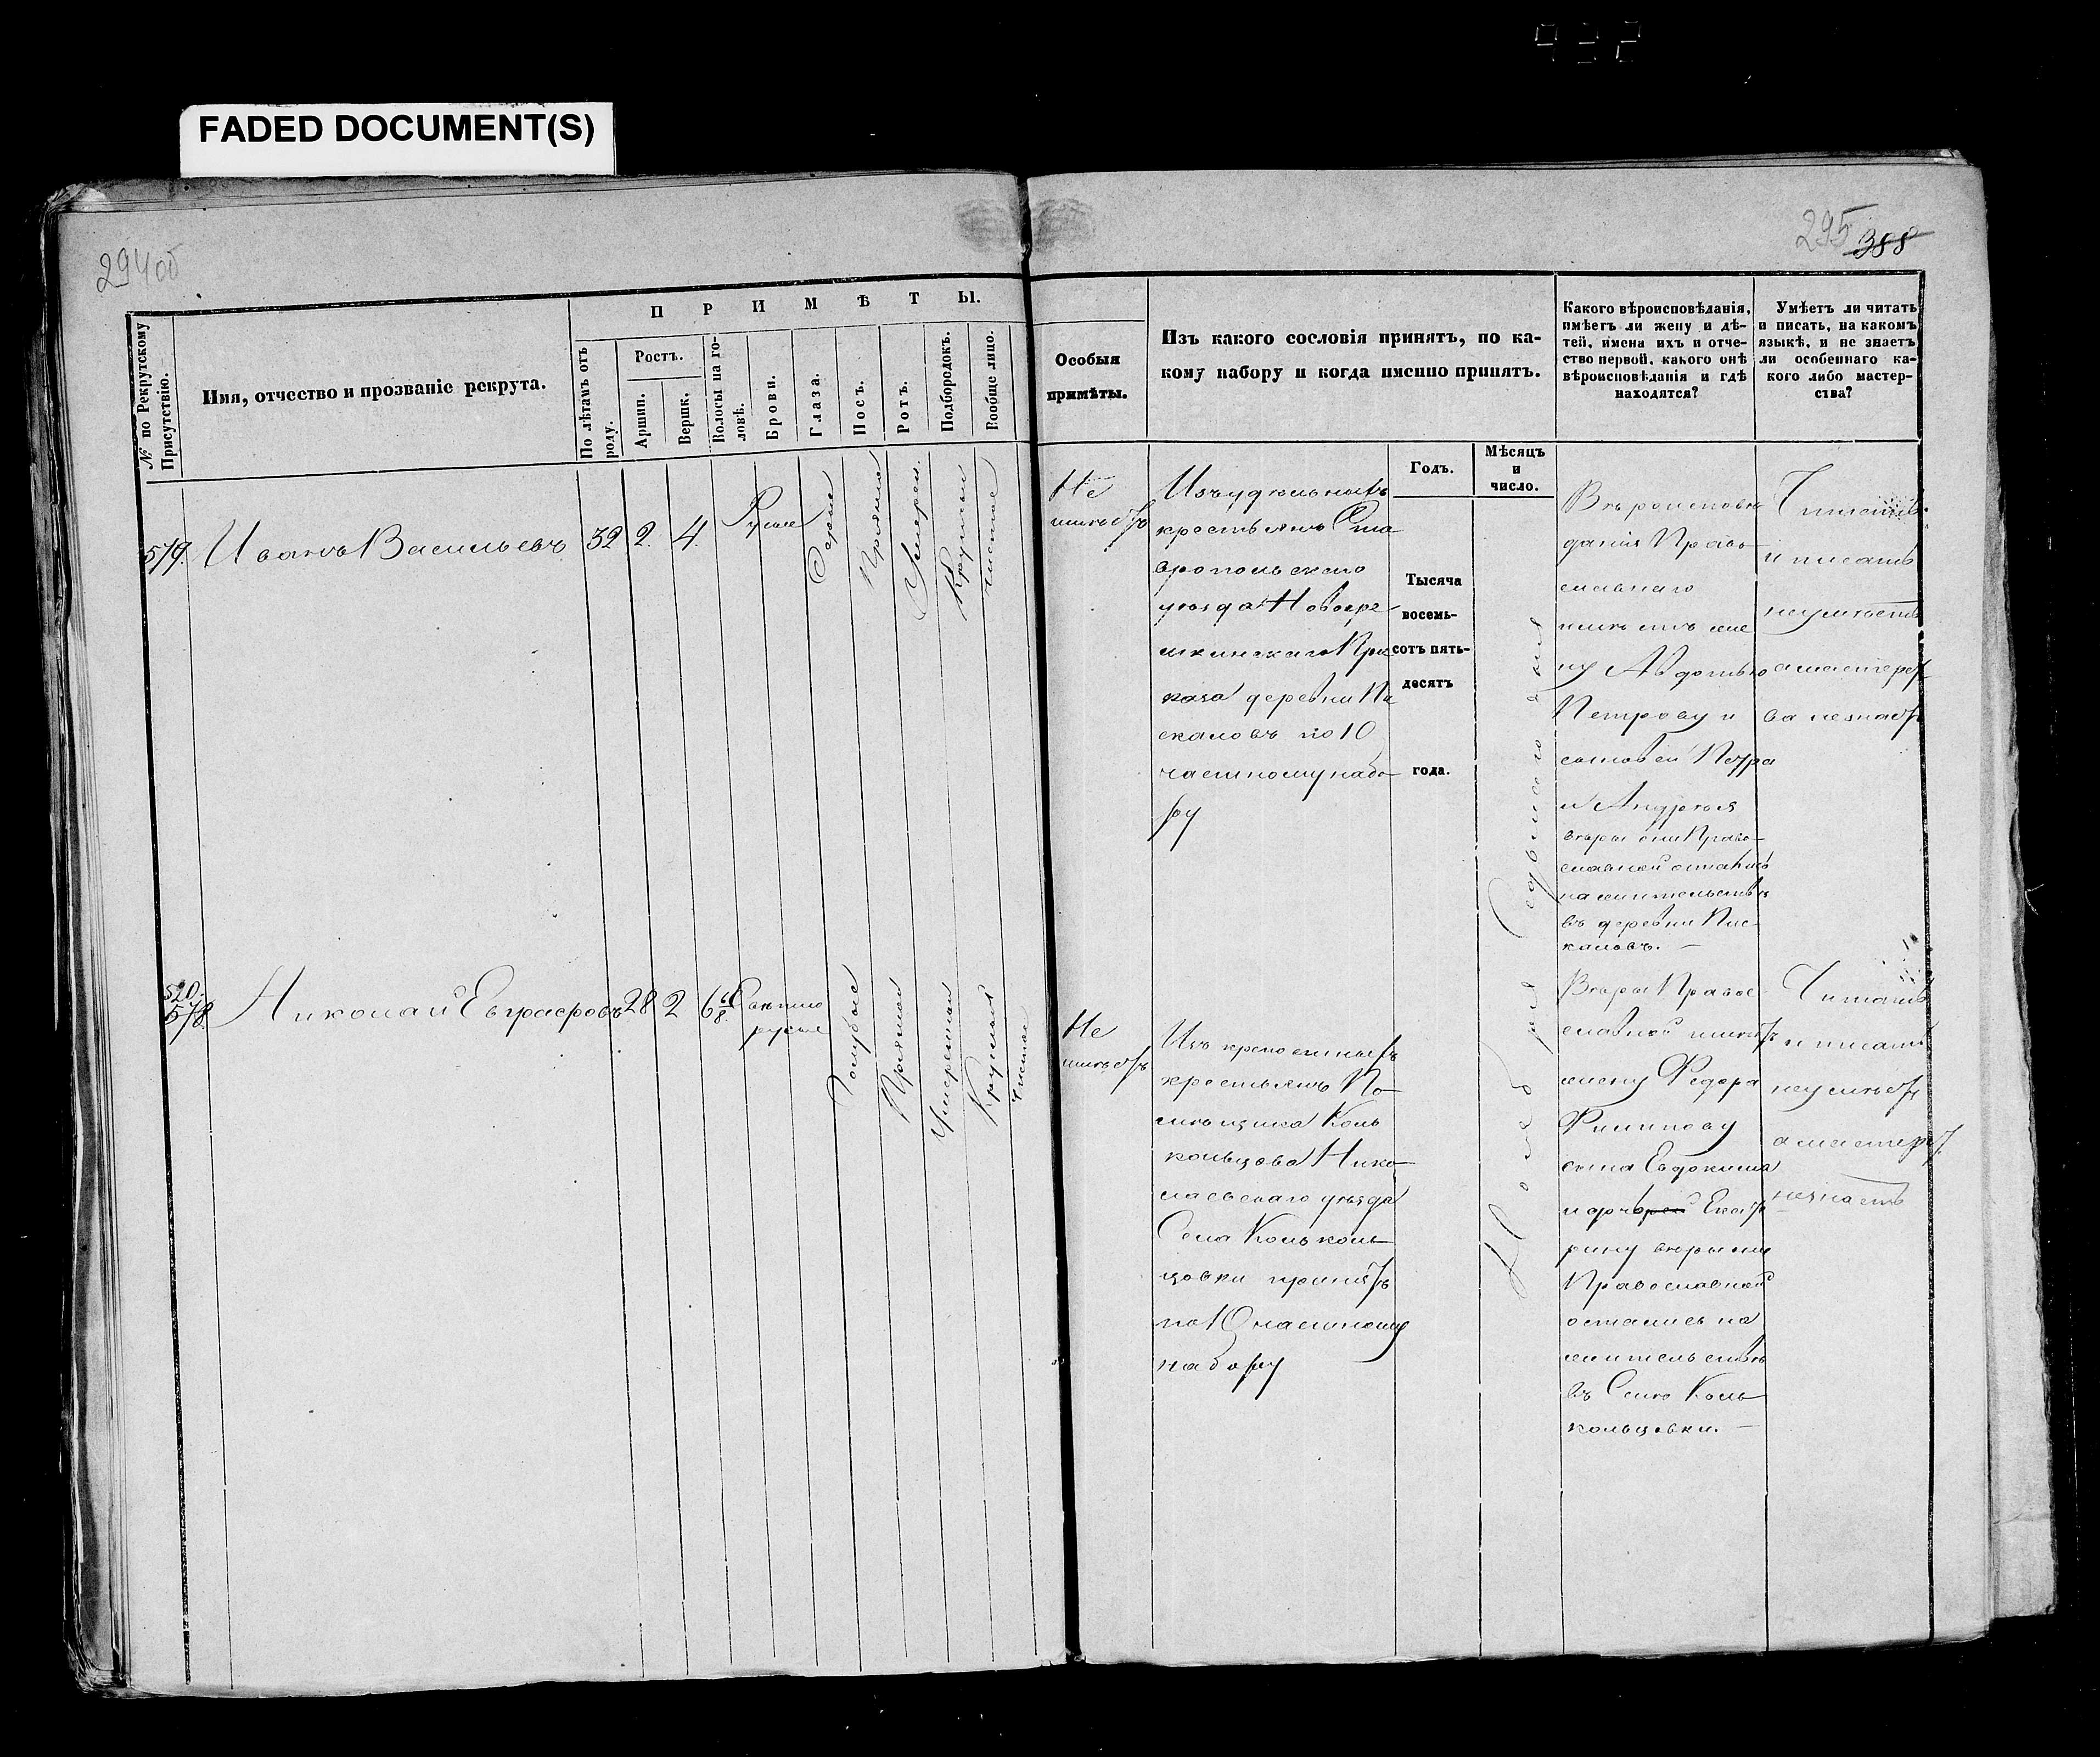 932
FADED DOCUMENT(S)
294об
295 388
№ по Рекрутскому
Присутствію.
Имя, отчество и прозваніе рекрута.
ПРИМѢТЫ.
По лѣтамъ отъ
роду.
Ростъ.
Аршин.
Вершк.
Волосы на го-
ловѣ.
Брови.
Глаза.
Носъ.
Ротъ.
Подбородокъ.
Вообще лицо.
Особыя
примѣты.
Изъ какого сословія принятъ, по ка-
кому набору и когда именно принятъ.
Какого вѣроисповѣданія,
имѣетъ ли жену и дѣ-
тей, имена ихъ и отче-
ство первой, какого онѣ
вѣроисповѣданія и гдѣ
находятся?
Умѣетъ ли читать
и писать, на какомъ
языкѣ, и не знаетъ
ли особеннаго ка-
кого либо мастер-
ства?
Годъ.
Мѣсяцъ
и
число.
Тысяча
восемь-
сотъ пять-
десятъ
года.
579. Иванъ Васильевъ 32 2. 4. Русые
Карые
Прямой
Умерен.
Круглый
чистое
Не
имѣетъ
Изъ удѣльныхъ
крестьянъ Ста
вропольскаго
уѣзда Новоере
мкинскаго При
каза деревни Пи
скаловъ по 10
частному набо
ру
Ноября седьмаго дня
Вѣроисповѣ
данія Право
славнаго
имѣетъ же
ну Авдотью
Петрову и
сыновей Петра
и Андрея
вѣры они Право-
славной остались
на жительствѣ
въ деревни Пис-
каловъ.
Читать
и писать
неумѣетъ
а мастерст
ва незнаетъ
520.
578. Николай Евграфовъ 28 2 6 6/8. Свѣтло
русые
Голубые
Прямой
Умеренный
Круглый
Чистое
Не
имѣетъ
Изъ крепостныхъ
крестьянъ По-
мѣщика Коль
кольцова Нико-
лаевскаго уѣзда
Села Кольколь
цовки принятъ
по 10 частному
набору
Вѣры Правос
лавной имѣетъ
жену Федора
Филипову
сына Евдокима
и дочь Екате
рину вѣры они
Православной
остались на
жительствѣ
въ Селѣ Коль
кольцовки.
Читать
и писать
неумѣетъ
а мастерст.
незнаетъ